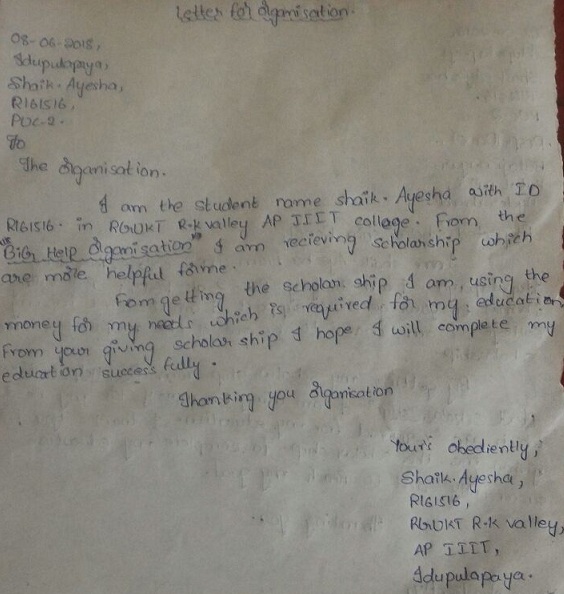 Letter for Organisation.
08-06-2018,
Idupulapaya,
Shaik. Ayesha,
R161516,
PUC-2.
To
The Organisation.
I am the student name shaik. Ayesha with ID
R161516. in RGUKT R.k valley AP IIIT collage. From the
"BiG Help Organisation" I am recieving scholarship which
are more helpful forme.
From getting the scholar ship I am using the
money for my needs which is required for my education
From your giving scholar ship I hope I will complete my
education success fully.
Thanking you Organisation
Your's obediently,
Shaik. Ayesha,
R161516,
RGUKT R.k valley,
AP IIIT,
Idupulapaya.